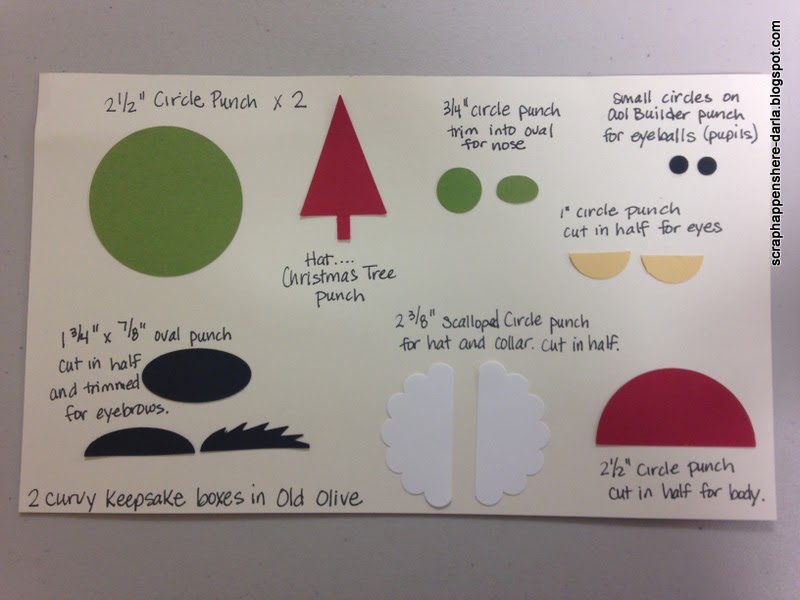 2 1/2" Circle Punch x 2
Hat....
Christmas Tree
punch
3/4" circle punch
trim into oval
for nose
Small circles on
Owl Builder punch
for eyeballs (pupils)
1" circle punch
cut in half for eyes
1 3/4" x 7/8" oval punch
cut in half
and trimmed
for eyebrows.
2 3/8" Scalloped Circle punch
for hat and collar. cut in half.
2 1/2" Circle punch
cut in half for body.
2 curvy Keepsake boxes in Old Olive
scraphappenshere-darla.blogspot.com